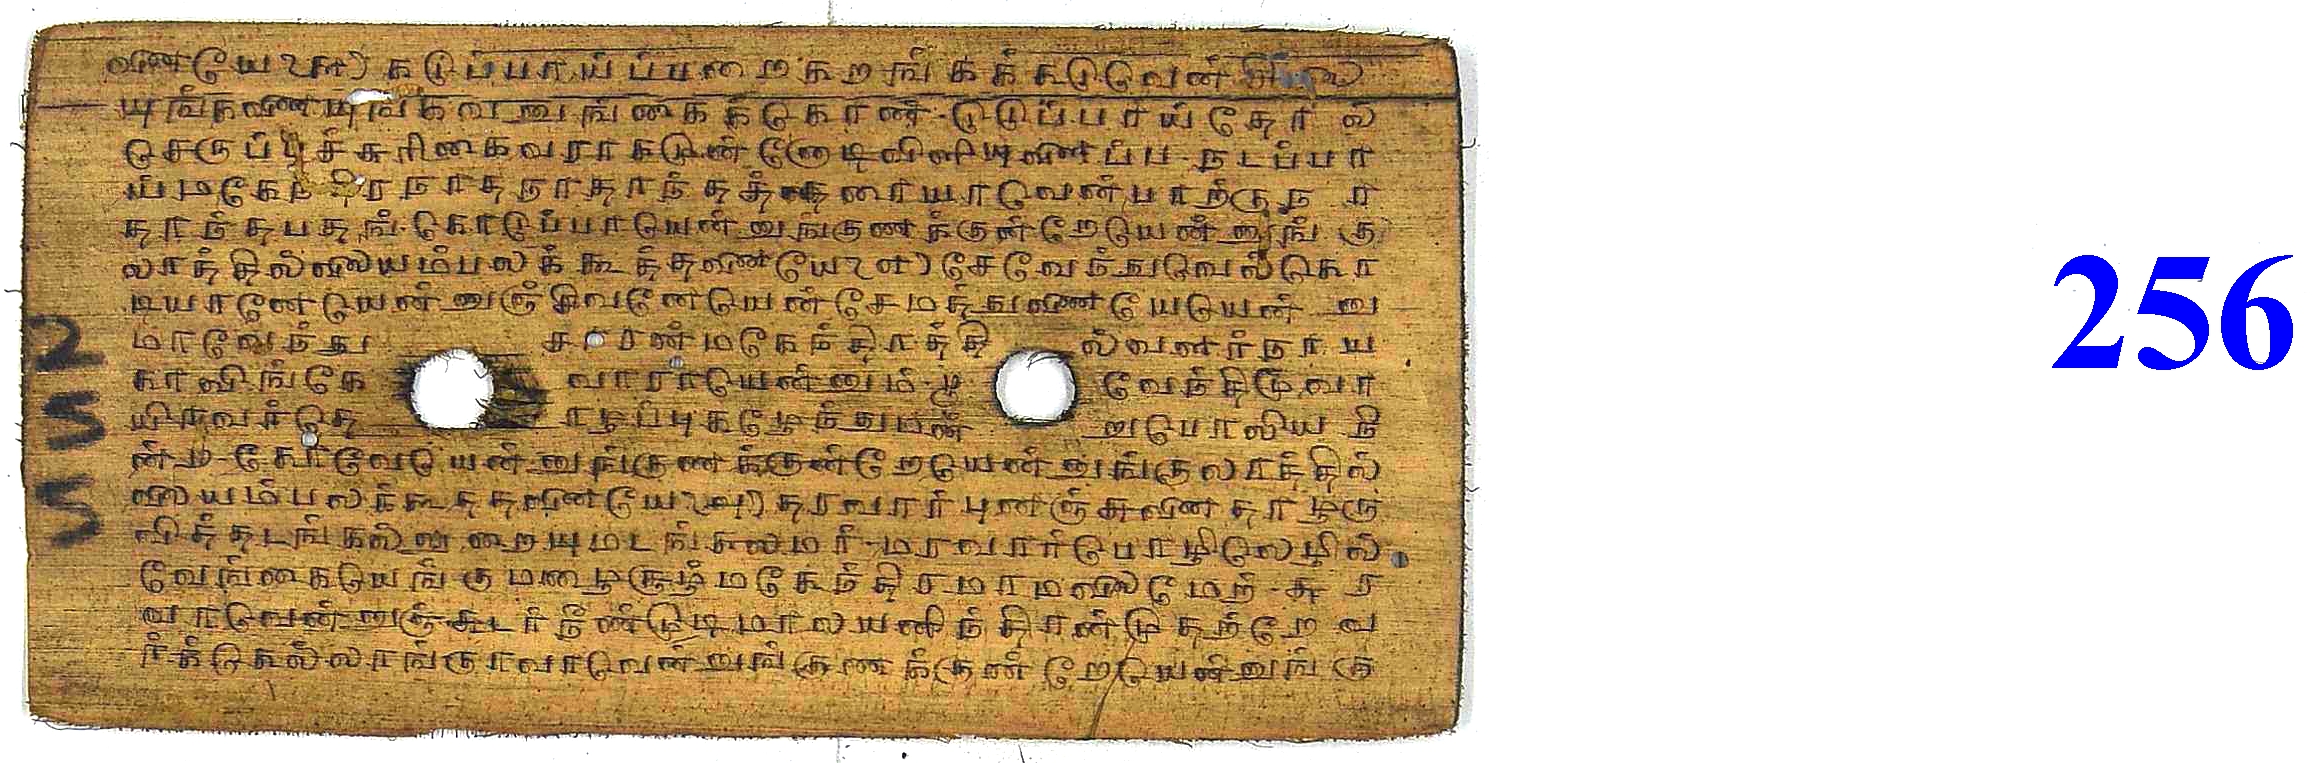 ணையே ௨௭) கடுப்பாய்ப்பறைகறங்கக்கடுவெஞ்சிலை
யுங்கணையுங்கவணுங்கைக்கொண்டுடுப்பாய்தோல்
செருப்புச்சுரிகைவராகமுன்னோடிவிளியுளைப்ப நடப்பா
ய்மகேந்திரநாதநாதாந்தத்தரையாவென்பார்க்குநா
தாந்தபதங்கொடுப்பாயென்னுங்குணக்குன்றேயென்னுங்கு
லாத்தில்லையம்பலக்கூத்தனையே ௨௭) சேவேந்துவெல்கொ
டியானேயென்னுஞ்சிவனேயென்சேமத்துணையேயென்னு
மாவேந்து சாரண்மகேந்திரத்தி ல்வளர்நாய
காவிங்கே வாராயென்னும் பூ வேந்திமூவா
யிரவர்தொ ழப்புகழேந்துமன் றுபொலிய நி
ன்ற கோவேயென்னுங்குணக்குன்றேயென்னுங்குலாத்தில்
லையம்பலக்கூத்தனையே ௨௮) தரவார்புனஞ்சுனைதாழரு
வித்தடங்கல்லுறையுமடங்கலமர் மரவார்பொழிலெழில்
வேங்கையெங்குமழைசூழ்மகேந்திரமாமலைமேற் சுர
வாவென்னுஞ்சுடர்நீண்முடிமாலயனிந்திரன்முதற்றேவ
ர்க்கெல்லாங்குரவாவென்னுங்குணக்குன்றேயென்னுங்கு
255
256